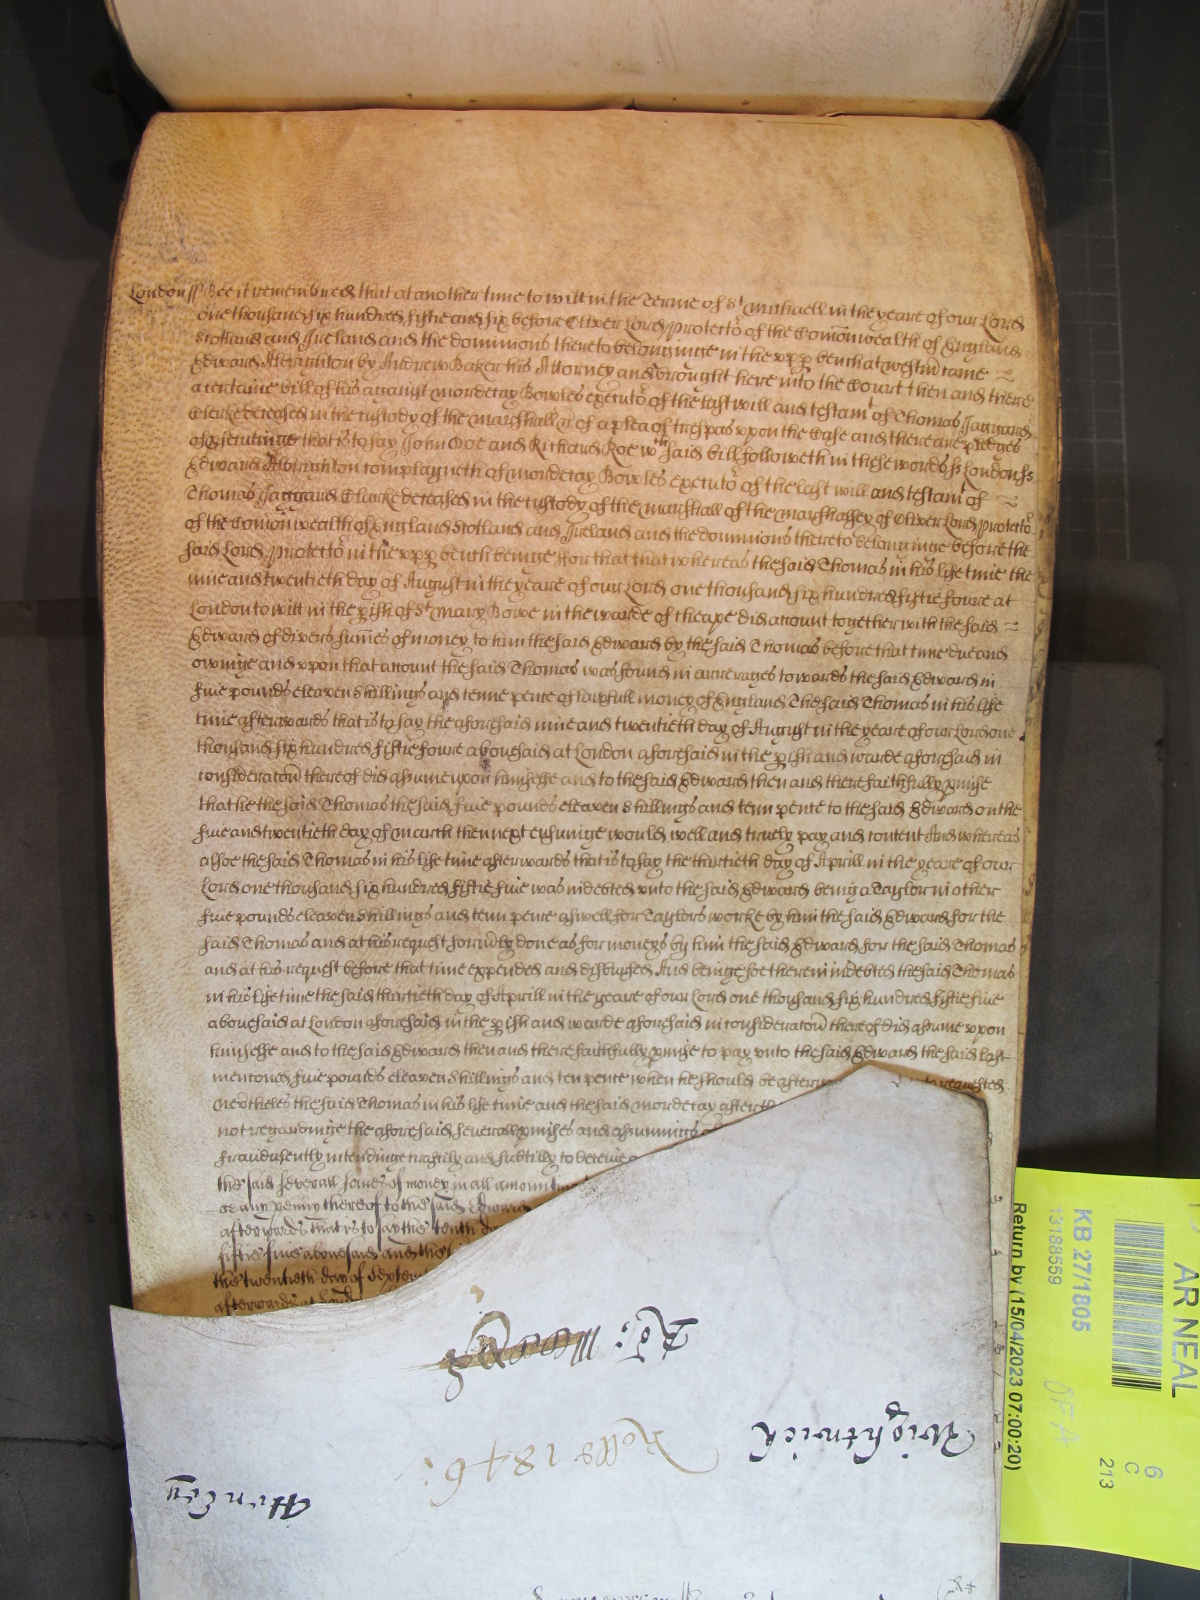 London ss Bee it remembred that at another time to witt in the Terme of St Michaell in the yeare of our Lord
one thousand six hundred fiftie and six before Oliver Lord Protecto^r of the Comonwealth of England
Scotland and Ireland and the dominions thereto belonginge in the upp bench at westm came
Edward by Andrew Baker his Attorney and brought here into the Court then and there
a certaine bill of his against Mordecay Bowles executo^r of the last will and testam^t of Thomas Jaggard
Clerke deceased in the custody of the Marshall &c of a plea of trespas upon the Case and there are pledges
of prosecutinge that is to say John Doe and Richard Roe w^ch said bill followeth in these words ss London ss
Edward complayneth of Mordecay Bowles executo^r of the last will and testam^t of
Thomas Jaggard Clarke deceased in the custody of the Marshall of the Marshalsey of Oliver Lord Protecto^r
of the Comonwealth of England Scotland and Ireland and the dominions thereto belonginge before the
said Lord Protecto^r in the upp bench beinge For that that whereas the said Thomas in his life time the
nine and twentieth day of August in the yeare of our Lord one thousand six hundred fiftie foure at
London to witt in the pish of St Mary Bowe in the warde of Cheape did account together with the said
Edward of divers sumes of money to him the said Edward by the said Thomas before that time due and
owinge and upon that account the said Thomas was found in arrerages towards the said Edward in
five pounds eleaven shillings and tenne pence of lawfull money of England The said Thomas in his life
time afterwards that is to say the aforesaid nine and twentieth day of August in the yeare of our Lord one
thousand six hundred fiftie fowre abovesaid at London aforesaid in the pish and warde aforesaid in
consideracon thereof did assume upon himselfe and to the said Edward then and there faithfully pmise
that he the said Thomas the said five pounds eleaven shillings and tenn pence to the said Edward on the
five and twentieth day of march then next ensuinge would well and truely pay and content And whereas
alsoe the said Thomas in his life time afterwards that is to say the thirtieth day of Aprill in the yeare of our
Lord one thousand six hundred fiftie five was indebted unto the said Edward being a Taylor in other
five pounds eleaven shillings and tenn pence aswell for Taylors worke by him the said Edward for the
said Thomas and at his request formly done as for moneys by him the said Edward for the said Thomas
and at his request before that time expended and disbursed And beinge soe therein indebted the said Thomas
in his life time the said thirtieth day of Aprill in the yeare of our Lord one thousand six hundred fiftie five
abovesaid at London aforesaid in the pish and warde aforesaid in consideracon thereof did assume upon
himselfe and to the said Edward then and there faithfully pmise to pay unto the said Edward the said last
mentoned five pounds eleaven shillings and ten pence when he should be requested
Nevtheles the said Thomas in his life time and the said Mordecay after
not regardinge the aforesaid severall pmises and assumings
fraudulently intendinge craftily and subtilly to deceive
the said severall somes of money in all amountinge
or any penny thereof to the said Edward
afterwards that is to say the tenth
fiftie five abovesaid and the
the twentieth day of Septem
afterwards at Lond
Ro:
Wightwick
Rolls 1846:
Henley
Return by (15/04/2023 07:00:20)
KB 27/1805
13188559
AR NEAL
6
C
213